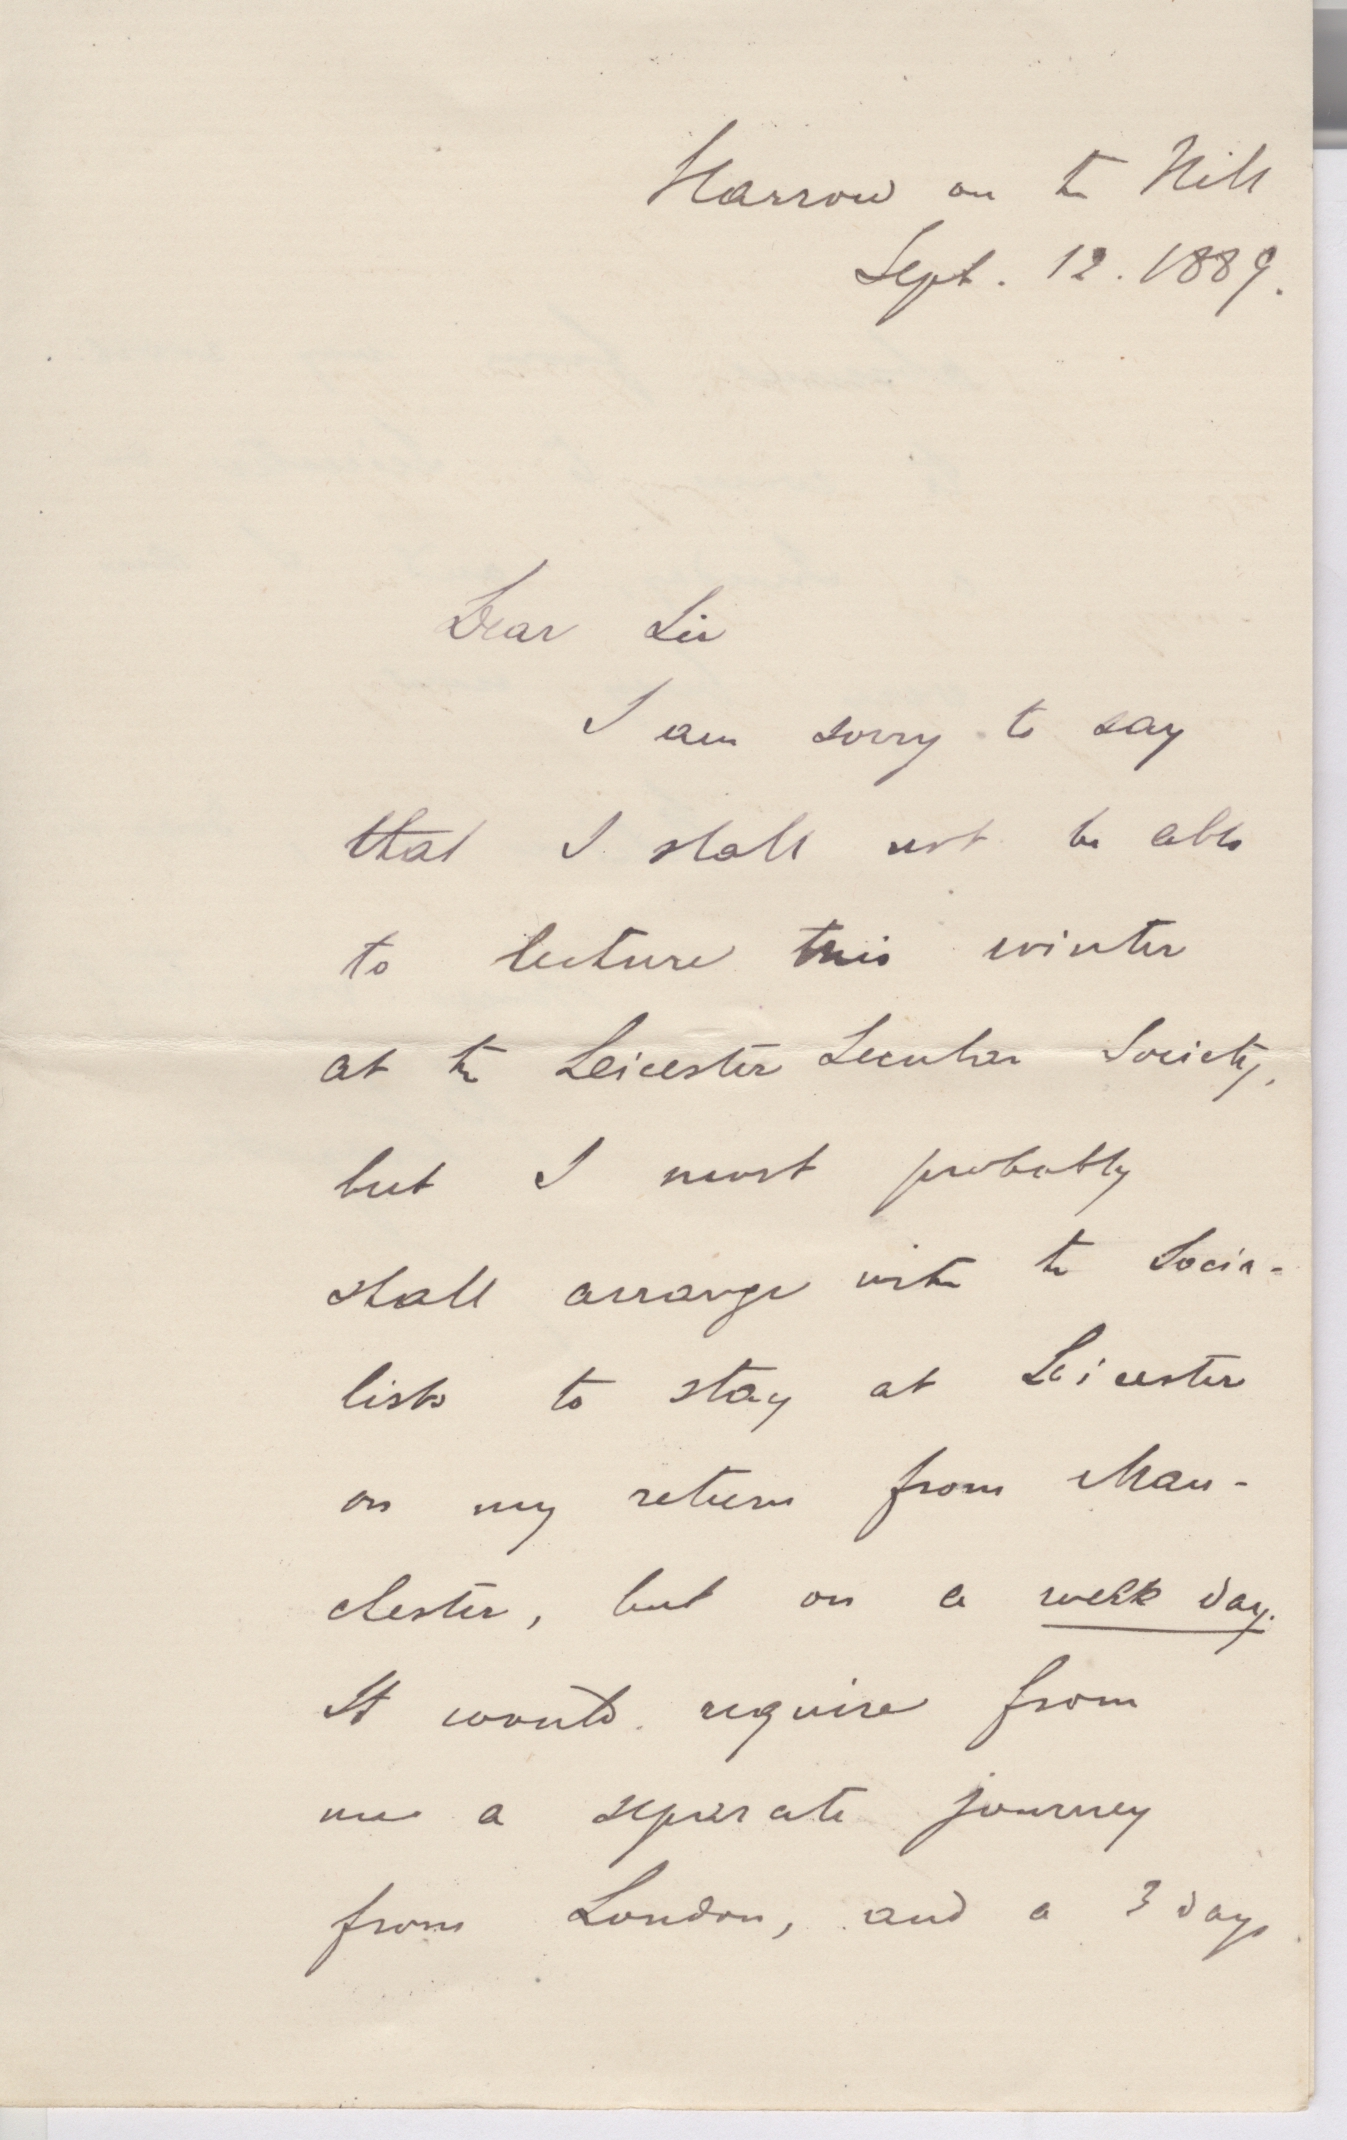 Harrow on the Hill
Sept. 12. 1889.
Dear Sir
I am sorry to say
that I shall not be able
to lecture this winter
at the Leicester Secular Society,
but I most probably
shall arrange with the Socia-
lists to stay at Leicester
on my return from Man-
chester, but on a week day.
It would require from
me a separate journey
from London, and a 3 days